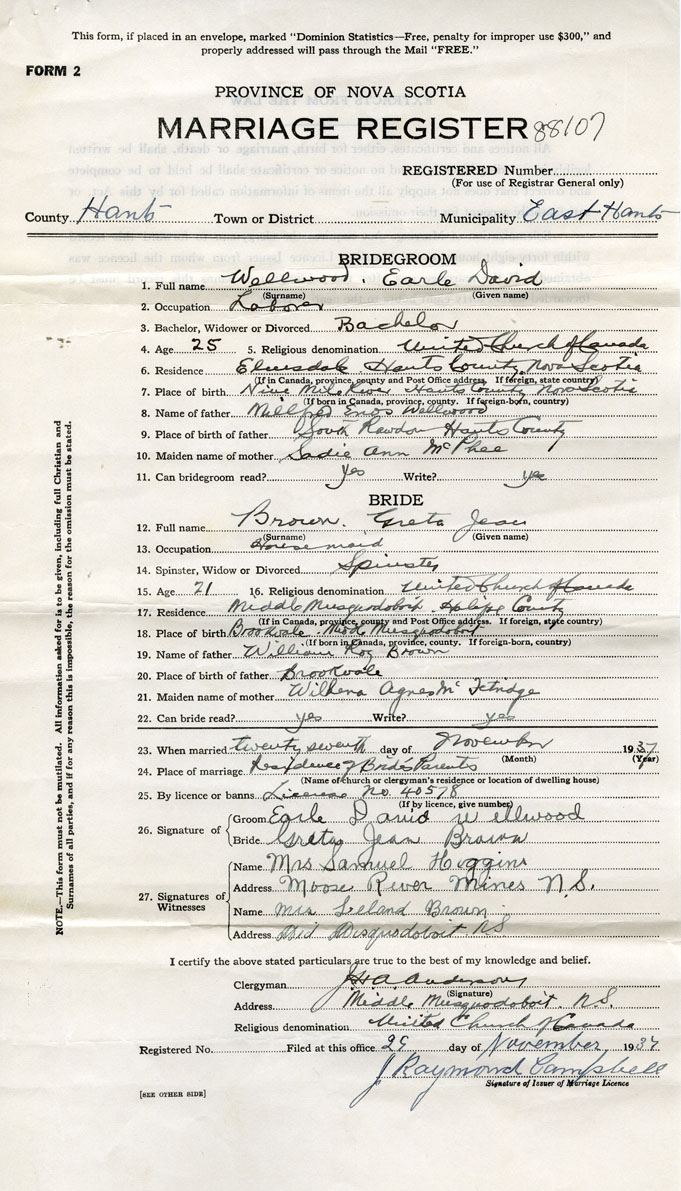 This form, if placed in an envelope, marked "Dominion Statistics—Free, penalty for improper use $300," and
properly addressed will pass through the Mail "FREE."
FORM 2
PROVINCE OF NOVA SCOTIA
MARRIAGE REGISTER 88107
REGISTERED Number
(For use of Registrar General only)
County Hants Town or District Municipality East Hants
BRIDEGROOM
1. Full name Wellwood. Earle David
(Surname) (Given name)
2. Occupation Laborer
3. Bachelor, Widower or Divorced Bachelor
4. Age 25 5. Religious denomination United Church of Canada
6. Residence Elmsdale Hants County Nova Scotia
(If in Canada, province, county and Post Office address. If foreign, state country)
7. Place of birth Nine Mile River Hants County Nova Scotia
(If born in Canada, province, county. If foreign-born, country)
8. Name of father Enos Wellwood
9. Place of birth of father South Rawdon Hants County
10. Maiden name of mother Sadie Ann McPhee
11. Can bridegroom read? yes Write? yes
BRIDE
12. Full name Brown. Greta Jean
(Surname) (Given name)
13. Occupation Housemaid
14. Spinster, Widow or Divorced Spinster
15. Age 21 16. Religious denomination United Church of Canada
17. Residence Middle Musquodoboit Halifax County
(If in Canada, province, county and Post Office address. If foreign, state country)
18. Place of birth Brookvale Musquodoboit
(If born in Canada, province, county. If foreign-born, country)
19. Name of father William Roy Brown
20. Place of birth of father Brookvale
21. Maiden name of mother Wilhena Agnes
22. Can bride read? yes Write? yes
23. When married twenty seventh day of November 1937
(Month) (Year)
24. Place of marriage Residence of Brides Parents
(Name of church or clergyman's residence or location of dwelling house)
25. By licence or banns License No. 40578
(If by licence, give number)
26. Signature of
Groom Earle David Wellwood
Bride Greta Jean Brown
27. Signatures of Witnesses
Name Mrs Samuel Higgins
Address Moose River Mines N.S.
Name Mrs Leland Brown
Address Mid Musquodoboit NS
I certify the above stated particulars are true to the best of my knowledge and belief.
Clergyman Anderson
(Signature)
Address Middle Musquodoboit N.S.
Religious denomination United Church of Canada
Registered No. Filed at this office 29 day of November 1937
J Raymond Campbell
Signature of Issuer of Marriage Licence
[SEE OTHER SIDE]
NOTE.—This form must not be mutilated. All information asked for is to be given, including full Christian and
Surnames of all parties, and if for any reason this is impossible, the reason for the omission must be stated.